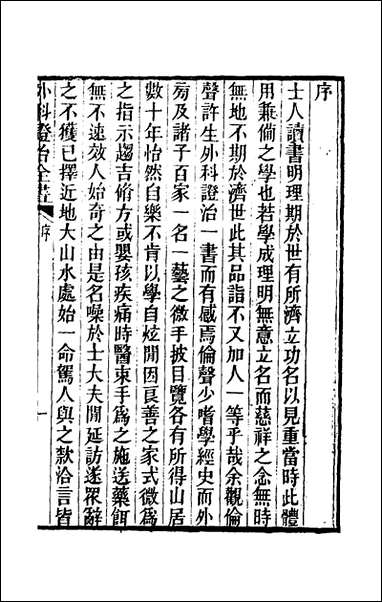 序
士人讀書明理期於世有所濟立功名以見重當時此體
用兼備之學也若學成理明無意立名而慈祥之念無時
無地不期於濟世此其品詣不又加人一等乎哉余觀倫
聲許生外科證治一書而有感焉倫聲少嗜學經史而外
旁及諸子百家一名一藝之微手披目覽各有所得山居
數十年怡然自樂不肯以學自炫閒因良善之家式微爲
之指示趨吉脩方或嬰孩疾痛時醫束手爲之施送藥餌
無不速效人始奇之由是名噪於士大夫閒延訪遂眾辭
之不獲已擇近地大山水處始一命駕人與之款洽言皆
外科證治全書
序
一